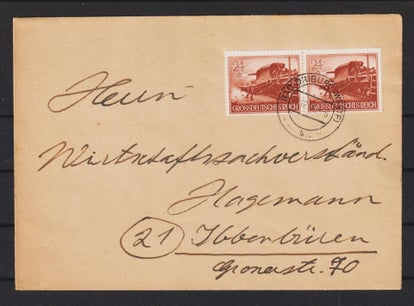 24 24
GROSSDEUTSCHES REICH GROSSDEUTSCHES REICH
Herrn
Wirtschaftssachverständ.
Hagemann
21 Ibbenbüren
Gronerstr. 70